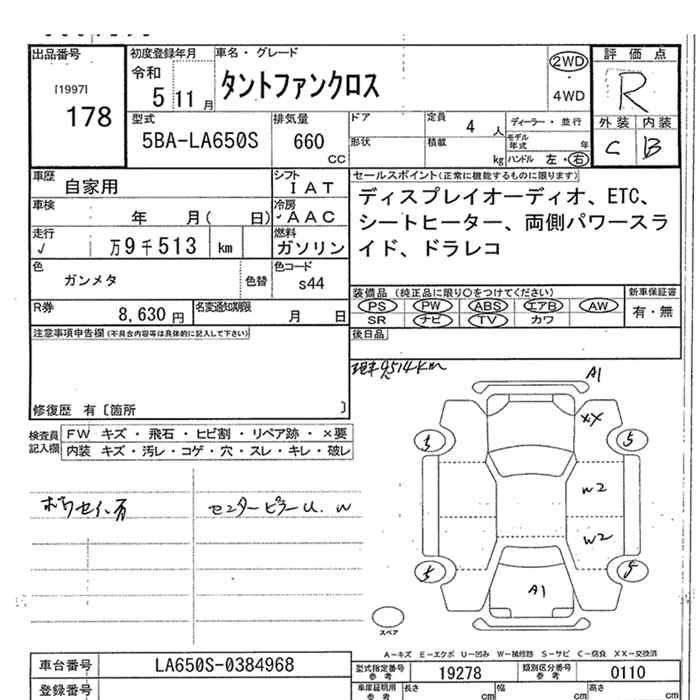 出品番号 初度登録年月 車名・グレード
[1997]
178
令和
5 11 月
タントファンクロス
2WD
4WD
評価点
R
外装 内装
C B
型式
5BA-LA650S
排気量
660
CC
ドア
形状
定員
4 人
積載
kg
ディーラー・並行
モデル年式 年
ハンドル 左・右
車歴
自家用
シフト
IAT
車検
年 月( 日)
冷房
✓AAC
走行
✓ 万9千513 km
燃料
ガソリン
色
ガンメタ
色替
色コード
s44
R券
8,630 円
名変通知期限
月 日
セールスポイント(正常に機能するものに限ります)
ディスプレイオーディオ、ETC、
シートヒーター、両側パワースラ
イド、ドラレコ
装備品(純正品に限り○をつけてください) 新車保証書
PS PW ABS エアB AW
SR ナビ TV カワ
有・無
注意事項申告欄(不具合内容等は具体的に記入して下さい)
後日品
修復歴 有〔箇所 〕
現車9,514km
検査員
記入欄
FW キズ・飛石・ヒビ割・リペア跡・×要
内装 キズ・汚レ・コゲ・穴・スレ・キレ・破レ
センターピラーU.W
A1
XX
5
5
W2
W2
5
5
A1
スペア
A-キズ E-エクボ U-凹み W-補修跡 S-サビ C-腐食 XX-交換済
車台番号
LA650S-0384968
登録番号
型式指定番号
参考
19278
類別区分番号
参考
0110
車庫証明用
参考
長さ cm
幅 cm
高さ cm